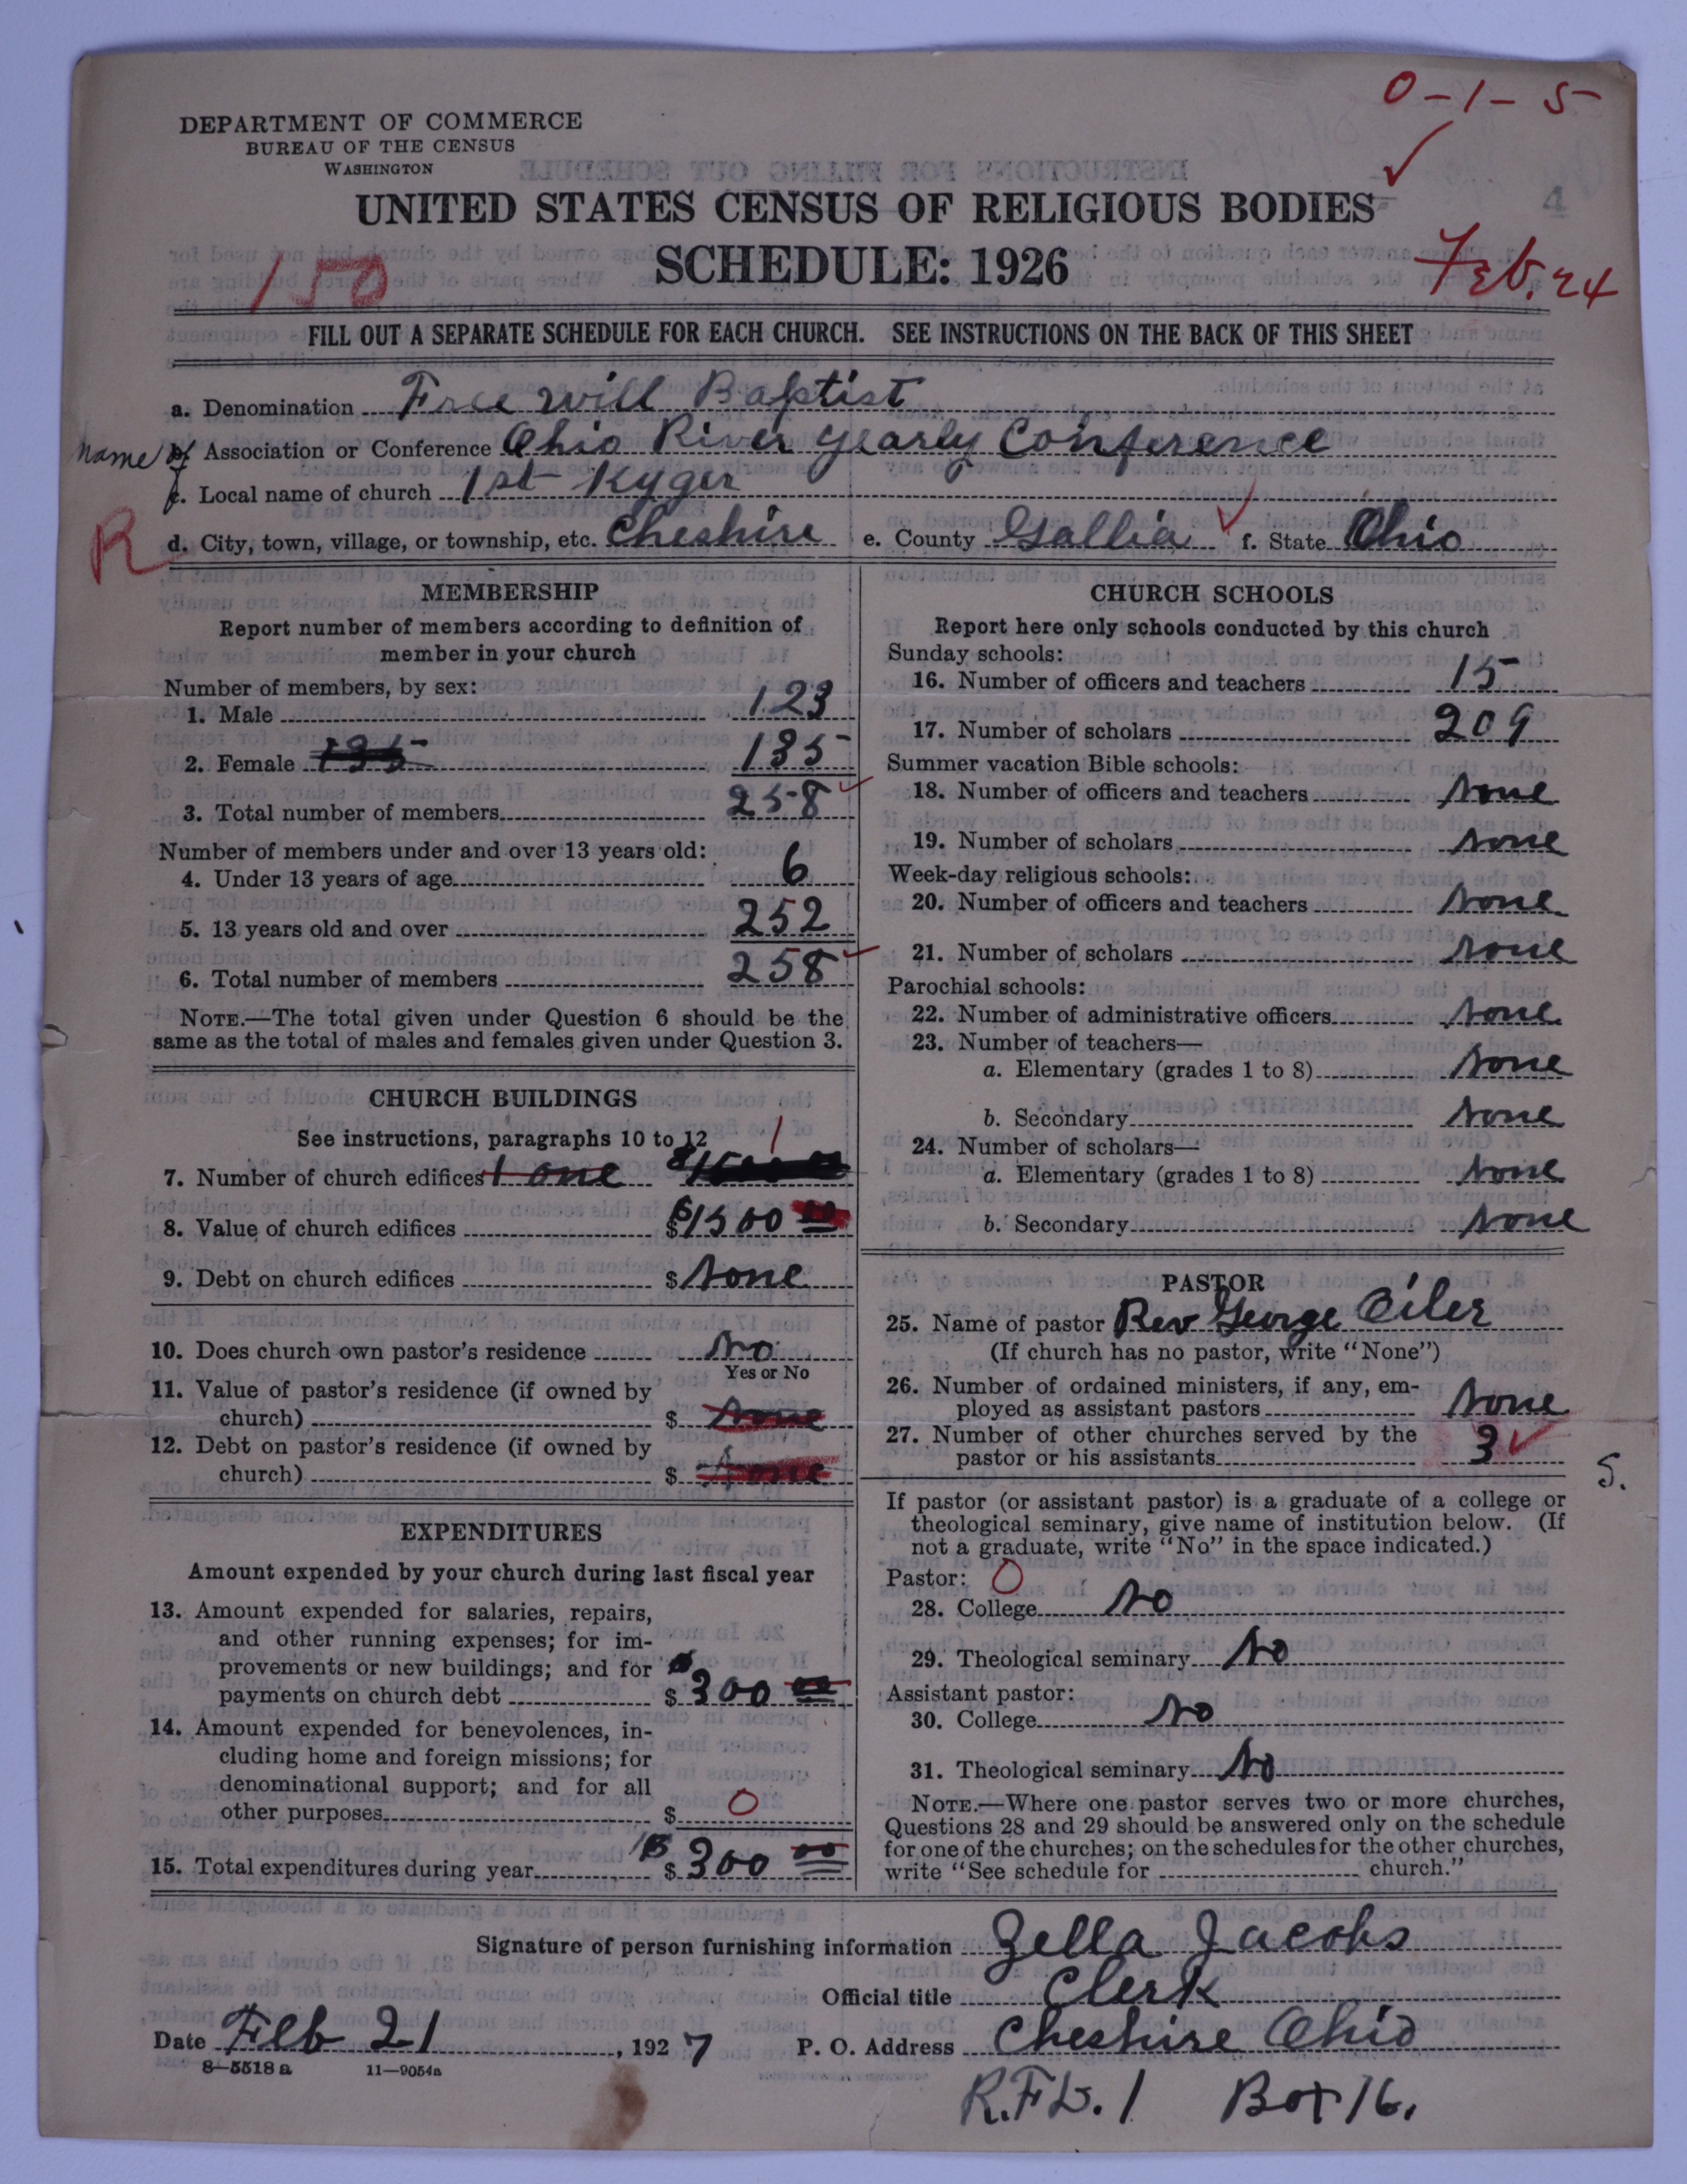 0-1-5
DEPARTMENT OF COMMERCE
BUREAU OF THE CENSUS
WASHINGTON
4
UNITED STATES CENSUS OF RELIGIOUS BODIES
SCHEDULE: 1926
150
Feb. 24
FILL OUT A SEPARATE SCHEDULE FOR EACH CHURCH. SEE INSTRUCTIONS ON THE BACK OF THIS SHEET
a. Denomination Free Will Baptist
name of Association or Conference Ohio River Yearly Conference
c. Local name of church 1st Kyger
R
d. City, town, village, or township, etc. Cheshire e. County Gallia f. State Ohio
MEMBERSHIP
Report number of members according to definition of
member in your church
Number of members, by sex:
1. Male 123
2. Female 135 135
3. Total number of members 258
Number of members under and over 13 years old:
4. Under 13 years of age 6
5. 13 years old and over 252
6. Total number of members 258
NOTE.—The total given under Question 6 should be the
same as the total of males and females given under Question 3.
CHURCH BUILDINGS
See instructions, paragraphs 10 to 12
7. Number of church edifices 1 one 1
8. Value of church edifices $1500 00
9. Debt on church edifices $ None
10. Does church own pastor's residence No
Yes or No
11. Value of pastor's residence (if owned by
church) $ None
12. Debt on pastor's residence (if owned by
church) $ None
EXPENDITURES
Amount expended by your church during last fiscal year
13. Amount expended for salaries, repairs,
and other running expenses; for im-
provements or new buildings; and for
payments on church debt $ 300 00
14. Amount expended for benevolences, in-
cluding home and foreign missions; for
denominational support; and for all
other purposes $ 0
15. Total expenditures during year $ 300 00
CHURCH SCHOOLS
Report here only schools conducted by this church
Sunday schools:
16. Number of officers and teachers 15
17. Number of scholars 209
Summer vacation Bible schools:
18. Number of officers and teachers None
19. Number of scholars None
Week-day religious schools:
20. Number of officers and teachers None
21. Number of scholars None
Parochial schools:
22. Number of administrative officers None
23. Number of teachers—
a. Elementary (grades 1 to 8) None
b. Secondary None
24. Number of scholars—
a. Elementary (grades 1 to 8) None
b. Secondary None
PASTOR
25. Name of pastor Rev George Oiler
(If church has no pastor, write "None")
26. Number of ordained ministers, if any, em-
ployed as assistant pastors None
27. Number of other churches served by the
pastor or his assistants 3
S.
If pastor (or assistant pastor) is a graduate of a college or
theological seminary, give name of institution below. (If
not a graduate, write "No" in the space indicated.)
Pastor: 0
28. College No
29. Theological seminary No
Assistant pastor:
30. College No
31. Theological seminary No
NOTE.—Where one pastor serves two or more churches,
Questions 28 and 29 should be answered only on the schedule
for one of the churches; on the schedules for the other churches,
write "See schedule for church."
Signature of person furnishing information Zella Jacobs
Official title Clerk
Date Feb 21, 1927 P. O. Address Cheshire Ohio
8—5518 a 11—9054a
R.F.D. 1 Box 16.